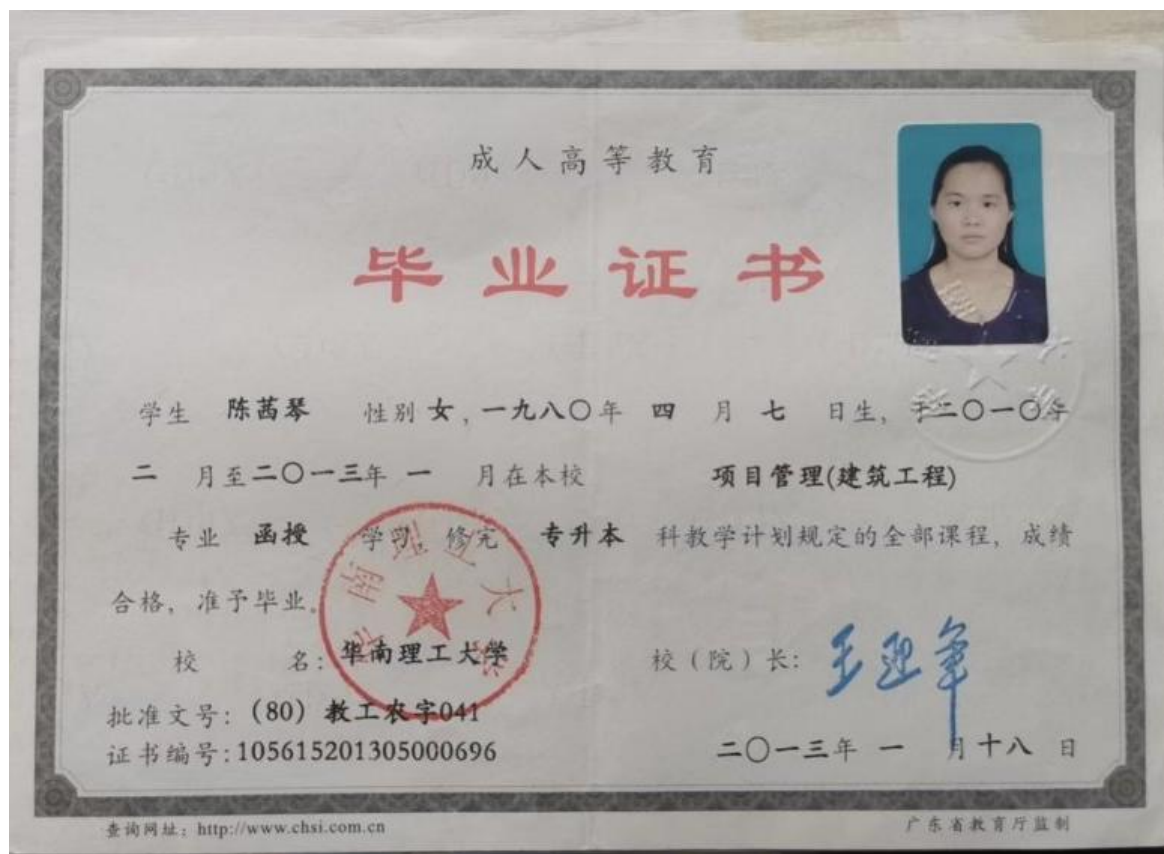 成人高等教育
毕业证书
学生 陈茜琴 性别 女,一九八〇年 四 月 七 日生,于二〇一〇年
二 月至二〇一三年 一 月在本校 项目管理(建筑工程)
专业 函授 学习,修完 专升本 科教学计划规定的全部课程,成绩
合格,准予毕业。
校 名:华南理工大学
校(院)长:王迎军
批准文号:(80)教工农字041
证书编号:105615201305000696
二〇一三年 一 月十八 日
华南理工大学
查询网址:http://www.chsi.com.cn
广东省教育厅监制